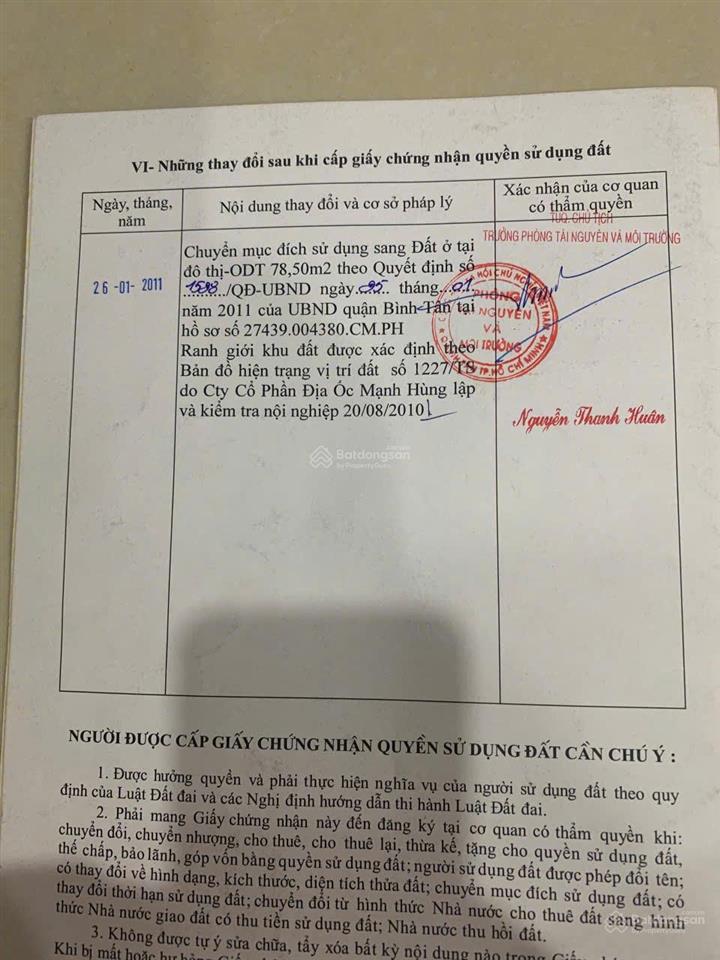 VI- Những thay đổi sau khi cấp giấy chứng nhận quyền sử dụng đất
Ngày, tháng, năm
Nội dung thay đổi và cơ sở pháp lý
Xác nhận của cơ quan có thẩm quyền
26 -01- 2011
Chuyển mục đích sử dụng sang Đất ở tại
đô thị-ODT 78,50m2 theo Quyết định số
1598/QĐ-UBND ngày 25 tháng 01
năm 2011 của UBND quận Bình Tân tại
hồ sơ số 27439.004380.CM.PH
Ranh giới khu đất được xác định theo
Bản đồ hiện trạng vị trí đất số 1227/TS
do Cty Cổ Phần Địa Ốc Mạnh Hùng lập
và kiểm tra nội nghiệp 20/08/2010
TUQ. CHỦ TỊCH
TRƯỞNG PHÒNG TÀI NGUYÊN VÀ MÔI TRƯỜNG
PHÒNG
NGUYÊN
VÀ
MÔI TRƯỜNG
TP. HỒ CHÍ MINH
Nguyễn Thanh Huân
Batdongsan
by PropertyGuru
NGƯỜI ĐƯỢC CẤP GIẤY CHỨNG NHẬN QUYỀN SỬ DỤNG ĐẤT CẦN CHÚ Ý :
1. Được hưởng quyền và phải thực hiện nghĩa vụ của người sử dụng đất theo quy
định của Luật Đất đai và các Nghị định hướng dẫn thi hành Luật Đất đai.
2. Phải mang Giấy chứng nhận này đến đăng ký tại cơ quan có thẩm quyền khi:
chuyển đổi, chuyển nhượng, cho thuê, cho thuê lại, thừa kế, tặng cho quyền sử dụng đất,
thế chấp, bảo lãnh, góp vốn bằng quyền sử dụng đất; người sử dụng đất được phép đổi tên;
có thay đổi về hình dạng, kích thước, diện tích thửa đất; chuyển mục đích sử dụng đất; có
thay đổi thời hạn sử dụng đất; chuyển đổi từ hình thức Nhà nước cho thuê đất sang hình
thức Nhà nước giao đất có thu tiền sử dụng đất; Nhà nước thu hồi đất.
3. Không được tự ý sửa chữa, tẩy xóa bất kỳ nội dung nào trong Giấy
Khi bị mất hoặc hư hỏng
Batdongsan
by PropertyGuru